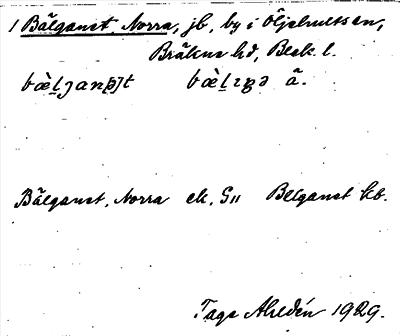 1 Bälganet Norra, jb, by i Öljehults sn,
Bräkne hd, Blek. l.
bæ̀l̠ɟanə̣t bæ̀l̠ıgə å.
Bälganet, Norra ek. G11 Belganet kb.
Tage Ahldén 1929.